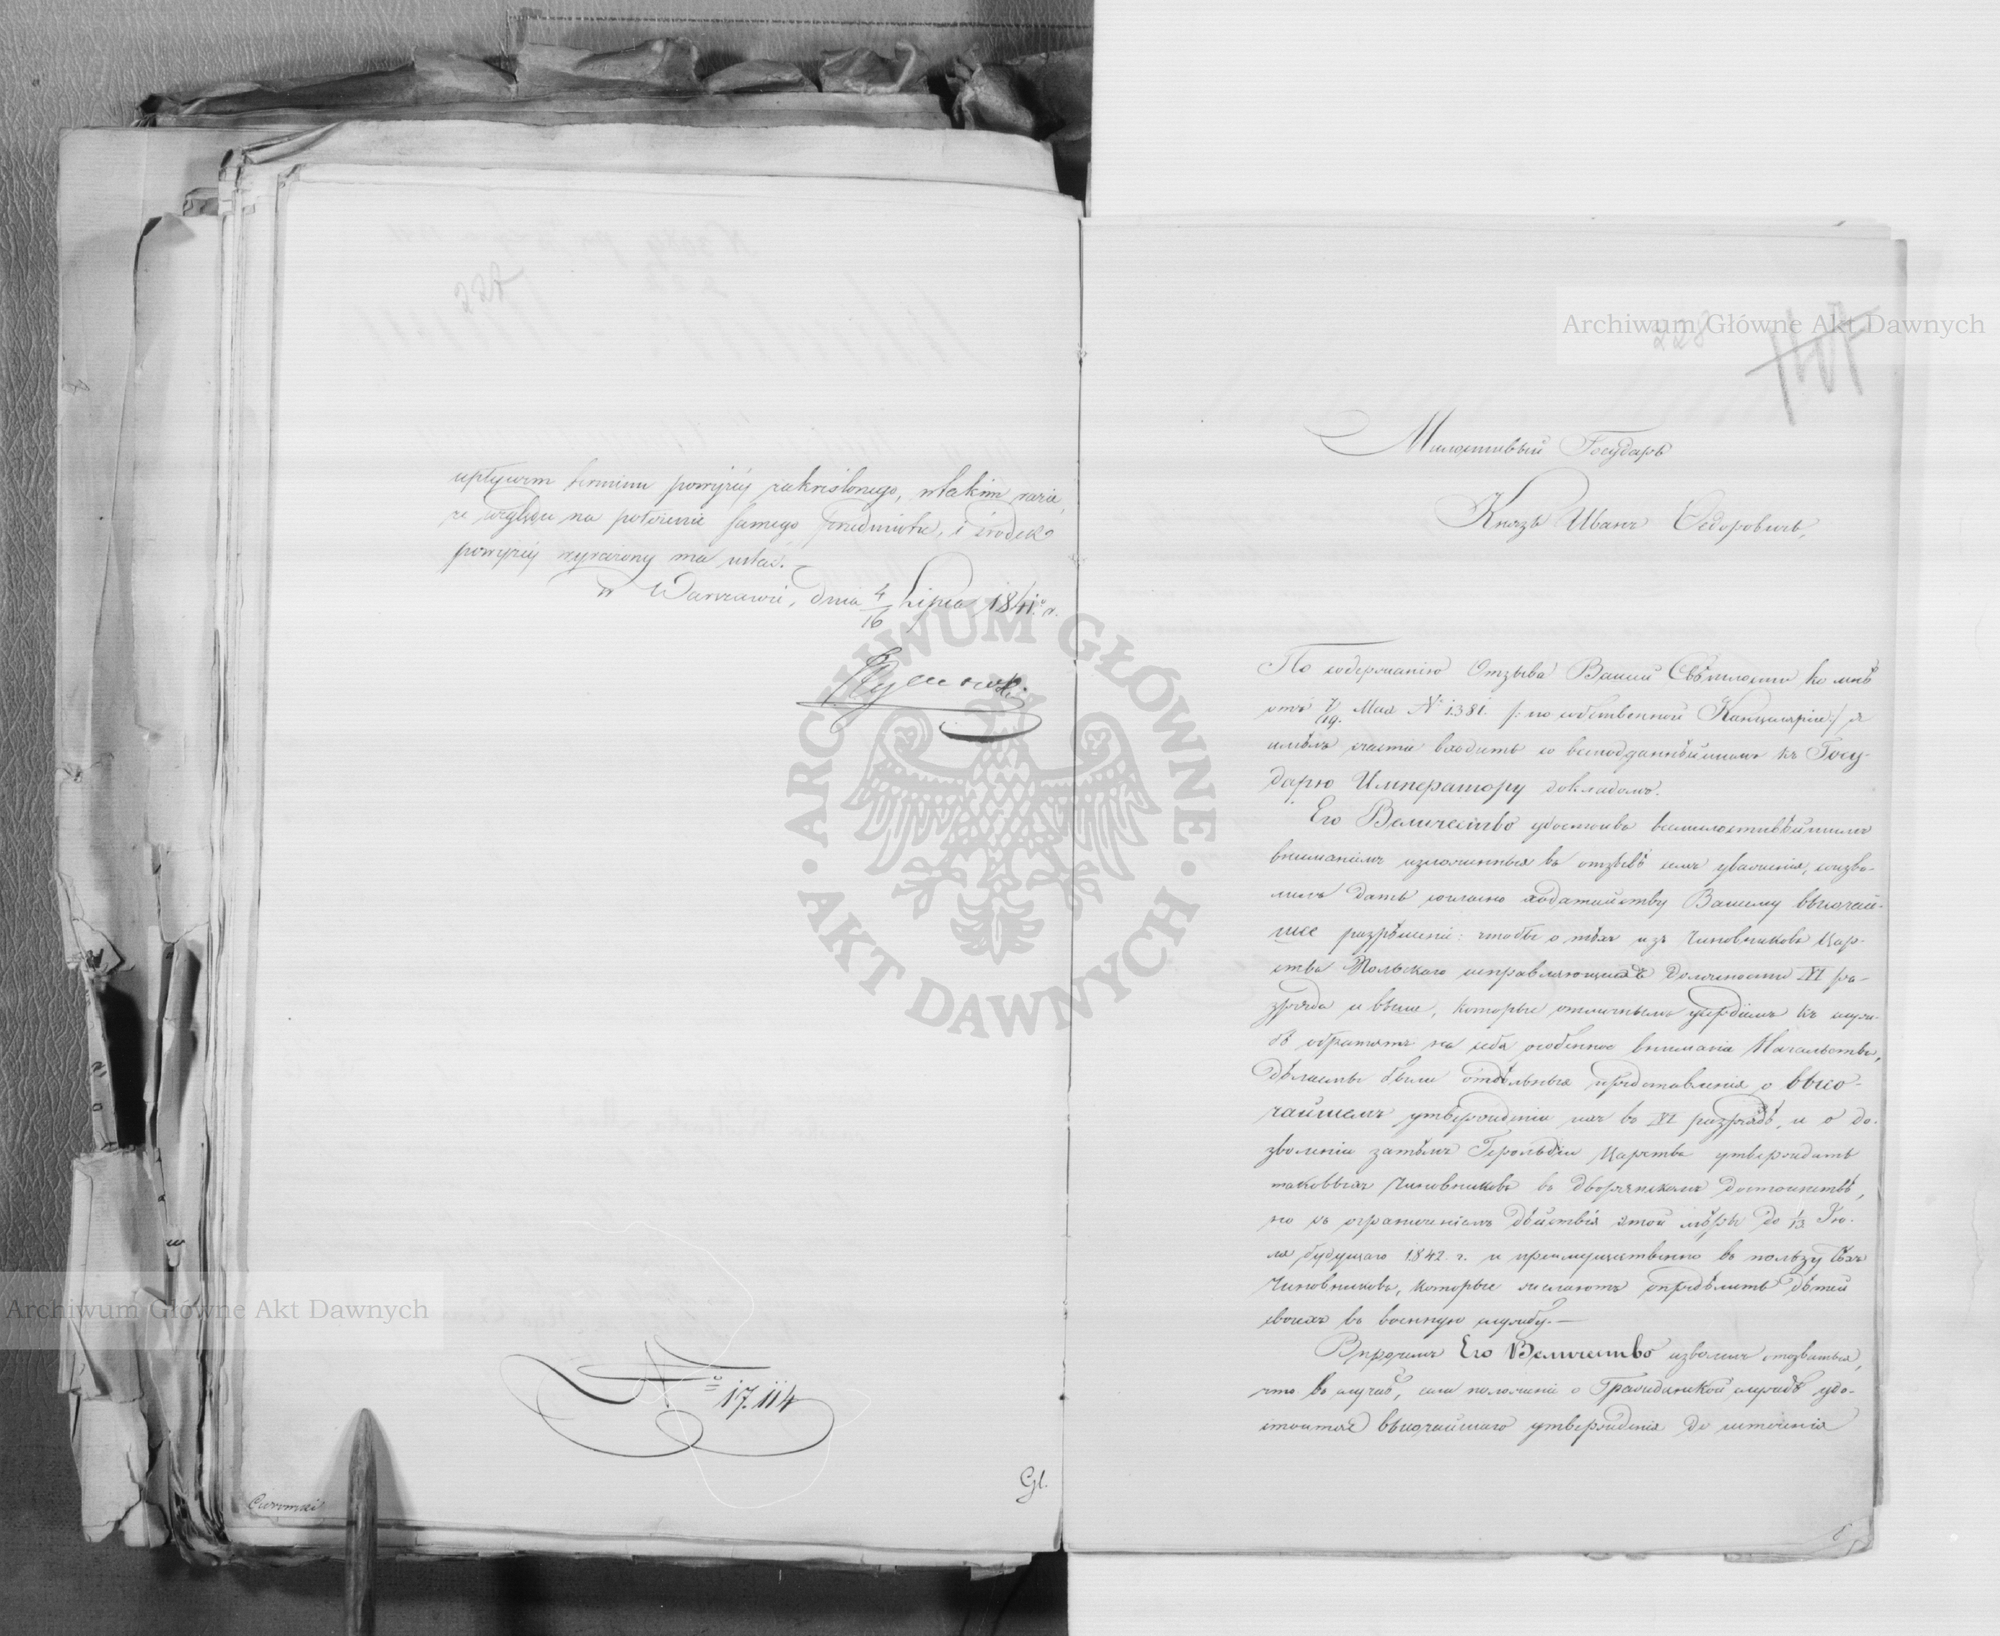 upływem terminu powyżej zakreślonego, w takim razie,
ze względu na położenie samego przedmiotu, i środek
powyżej wyrażony ma ustać.
w Warszawie, dnia 4/16 Lipca 1841. r.
№ 17.114
Gl.
228
Милостивый Государь
Князь Иванъ Ѳедоровичъ,
По содержанію отзыва Вашей Свѣтлости ко мнѣ
отъ 7/19. Мая № 1381. /: по собственной Канцеляріи :/ я
имѣлъ счастіе входить со всеподданнѣйшимъ къ Госу-
дарю Императору докладомъ.
Его Величество удостоивъ всемилостивѣйшимъ
вниманіемъ изложенныя въ отзывѣ семъ уваженія, соизво-
лилъ дать согласно ходатайству Вашему высочай-
шее разрѣшеніе: чтобы о тѣхъ изъ Чиновниковъ Цар-
ства Польскаго исправляющихъ должности XI ра-
зряда и выше, которые отличнымъ усердіемъ къ служ-
бѣ обратятъ на себя особенное вниманіе Начальства,
дѣлаемы были отдѣльныя представленія о высо-
чайшемъ утвержденіи ихъ въ XI разрядѣ, и о до-
зволеніи затѣмъ Герольдіи Царства утверждать
таковыхъ Чиновниковъ въ дворянскомъ достоинствѣ,
но съ ограниченіемъ дѣйствія этой мѣры до 1/13 Ію-
ля будущаго 1842. г. и преимущественно въ пользу тѣхъ
Чиновниковъ, которые желаютъ опредѣлить дѣтей
своихъ въ военную службу.—
Впрочемъ Его Величество изволилъ отозваться,
что въ случаѣ, если положеніе о Гражданской службѣ удо-
стоится высочайшаго утвержденія до истеченія
Archiwum Główne Akt Dawnych
Archiwum Główne Akt Dawnych
ARCHIWUM GŁÓWNE · AKT DAWNYCH ·